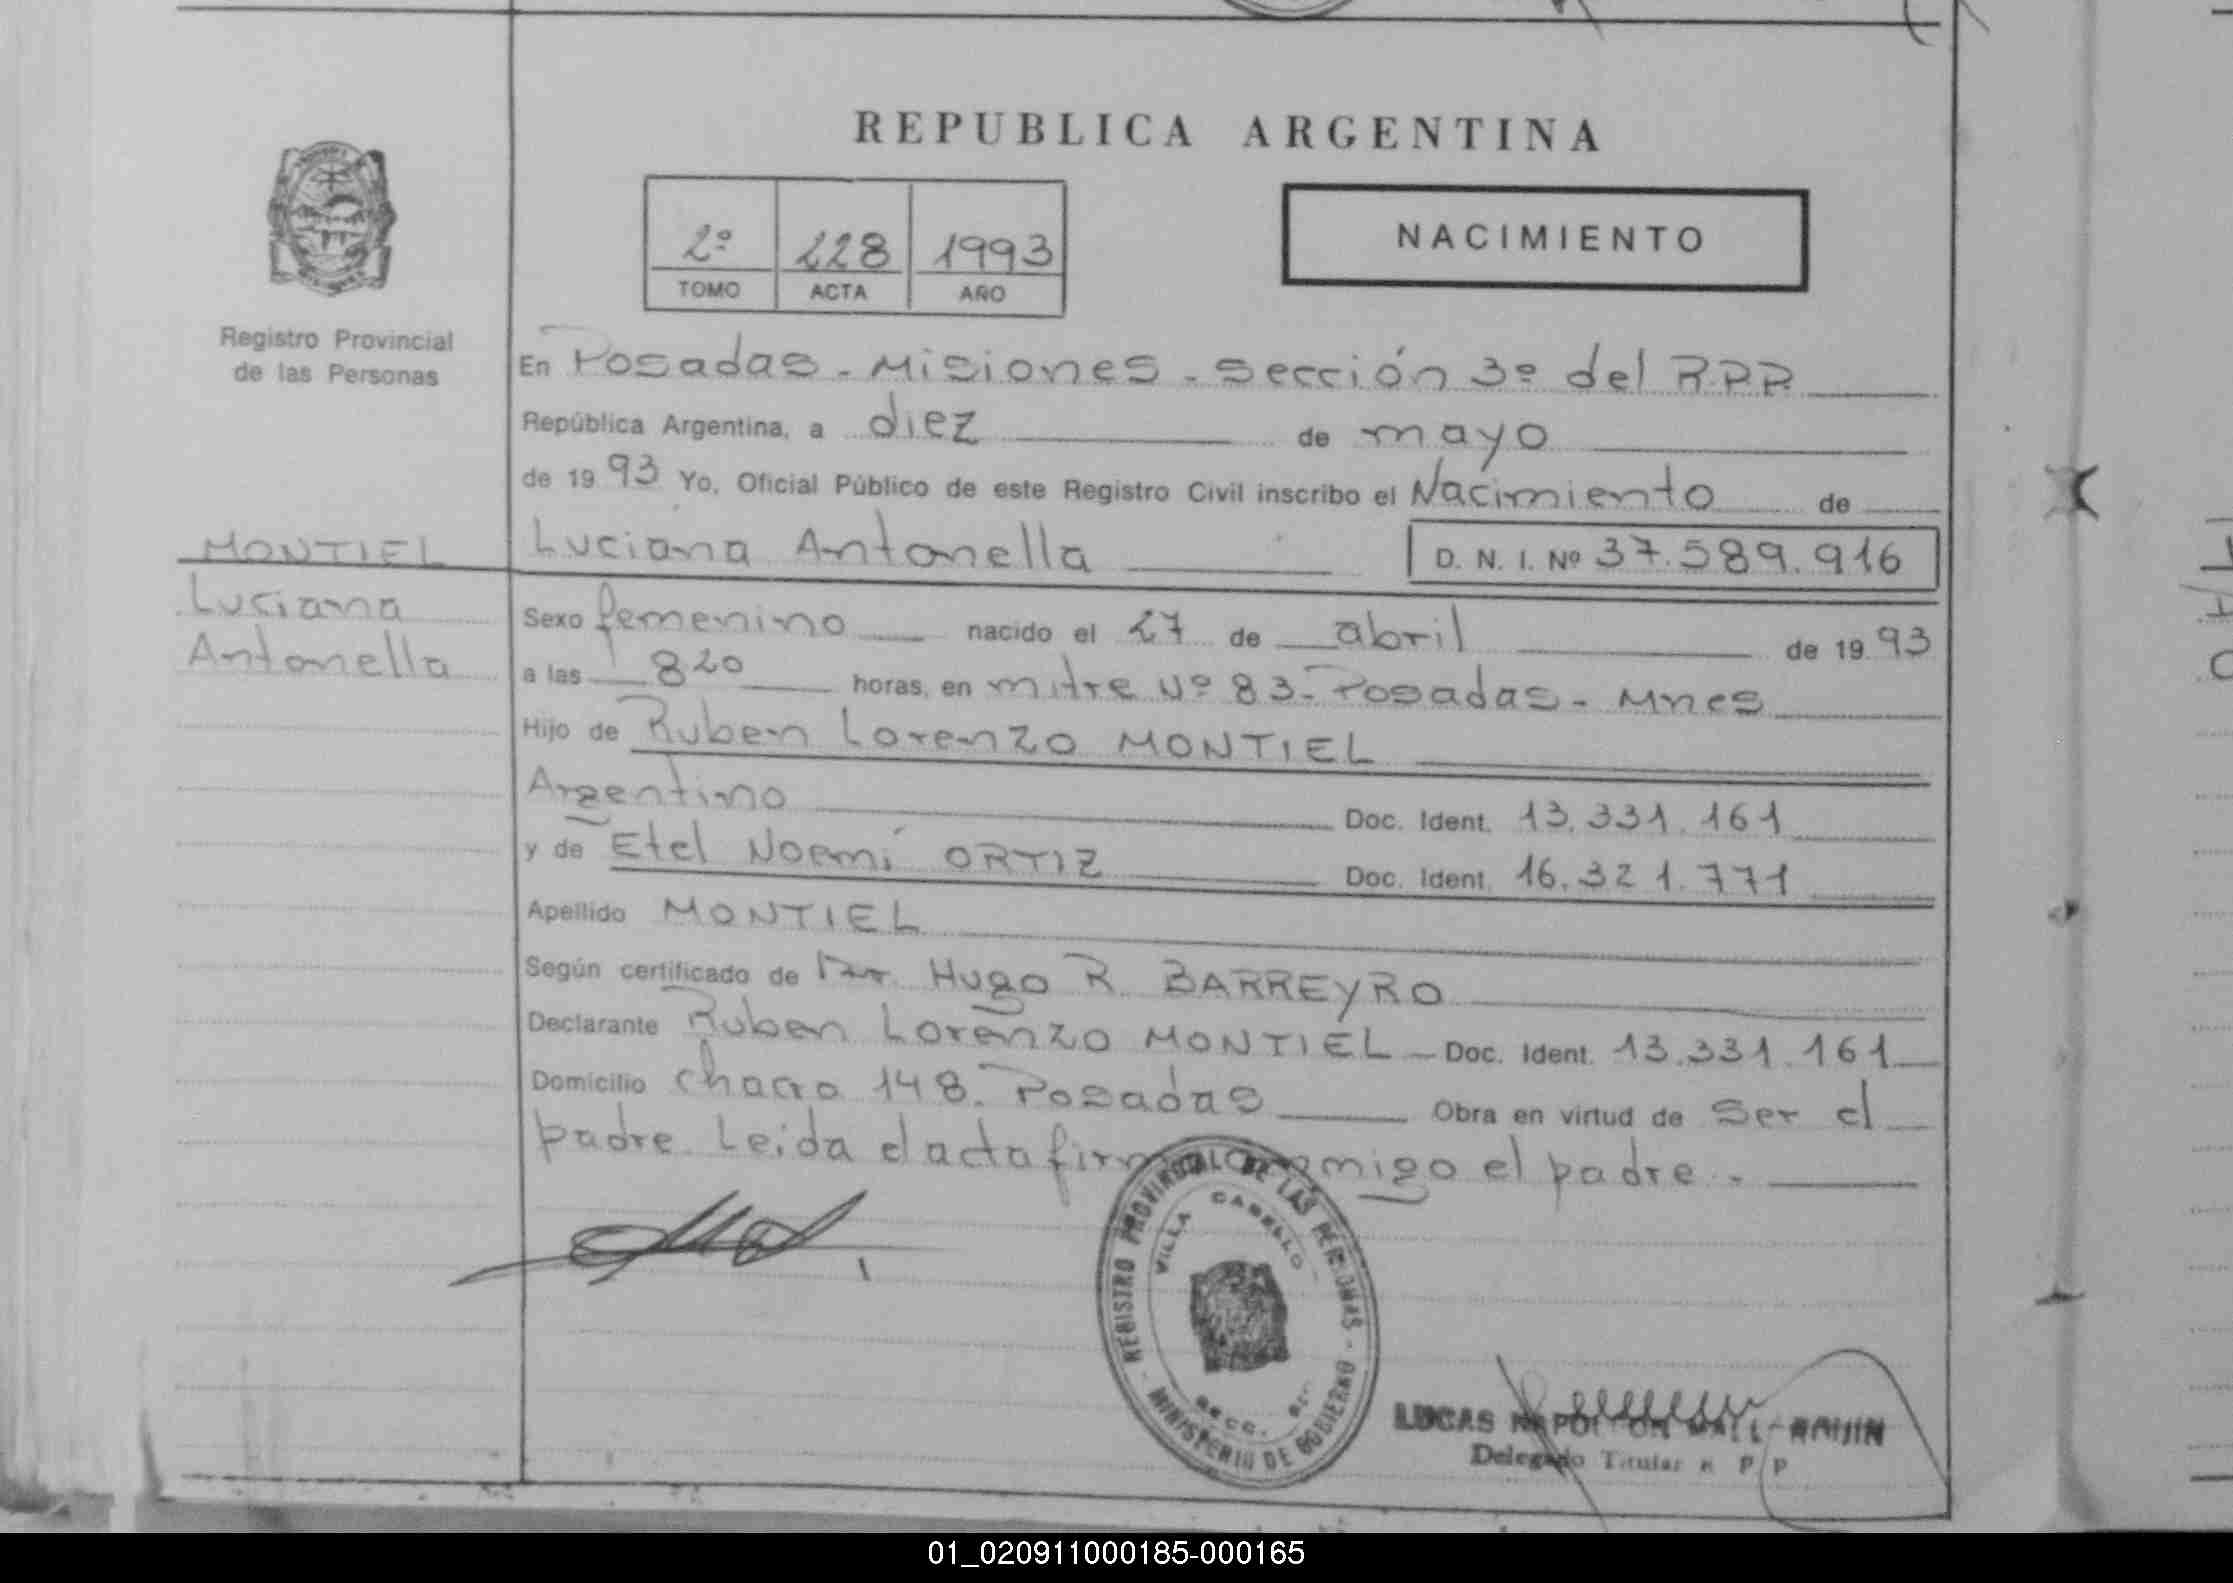 REPUBLICA ARGENTINA
2º 228 1993
TOMO ACTA AÑO
NACIMIENTO
Registro Provincial
de las Personas
MONTIEL
Luciana
Antonella
En Posadas - Misiones - Sección 3º del R.P.P.
República Argentina, a diez de mayo
de 19 93 Yo, Oficial Público de este Registro Civil inscribo el Nacimiento de
Luciana Antonella D. N. I. Nº 37.589.916
Sexo femenino nacido el 27 de abril de 19 93
a las 8 20 horas, en mitre Nº 83 - Posadas - Mnes
Hijo de Ruben Lorenzo MONTIEL
Argentino Doc. Ident. 13.331.161
y de Etel Noemí ORTIZ Doc. Ident. 16.321.771
Apellido MONTIEL
Según certificado de Dr. Hugo R. BARREYRO
Declarante Ruben Lorenzo MONTIEL - Doc. Ident. 13.331.161
Domicilio chacra 148. Posadas Obra en virtud de Ser el
padre. Leida el acta firma conmigo el padre.-
REGISTRO PROVINCIAL DE LAS PERSONAS
VILLA CABELLO
SECC.
MINISTERIO DE GOBIERNO
LUCAS NAPOLEON
Delegado Titular R P P
01_020911000185-000165